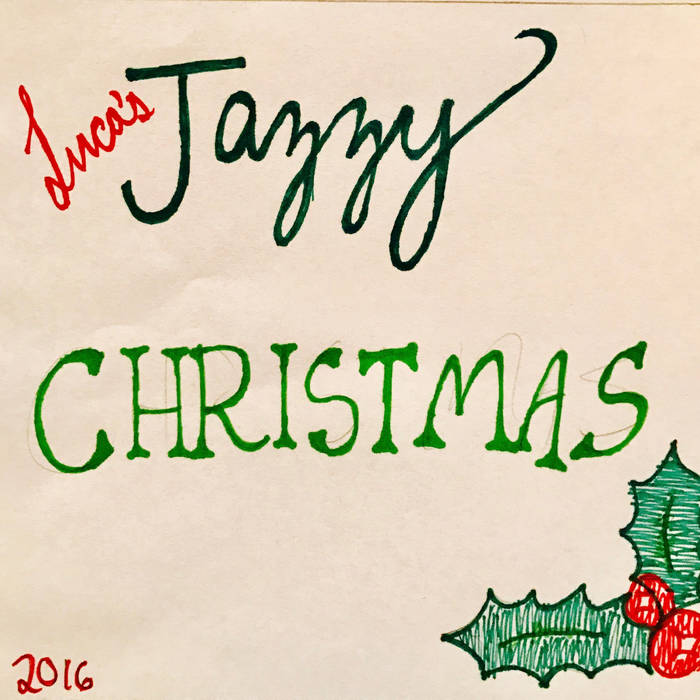 Luca's Jazzy
CHRISTMAS
2016